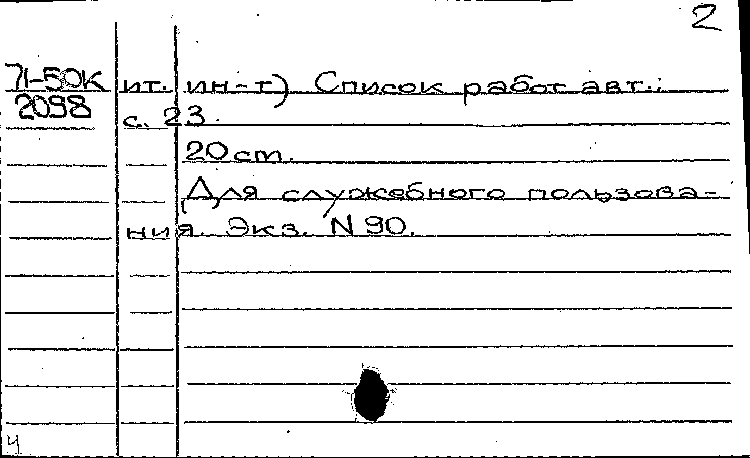 2
71-50К ит. ин-т) Список работ авт.:
2098 с. 23.
20 ст.
Для служебного пользова-
ния. Экз. N 90.
ч